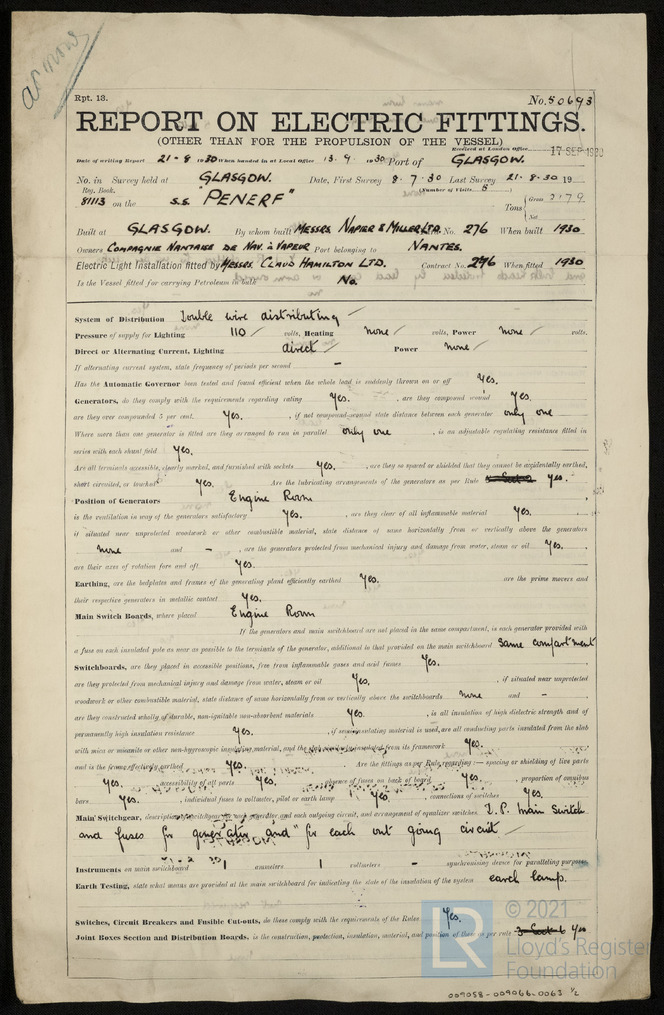 as now
Rpt. 13.
No. 50693
REPORT ON ELECTRIC FITTINGS.
(OTHER THAN FOR THE PROPULSION OF THE VESSEL)
Received at London Office 17 SEP 1930
Date of writing Report 21-8 1930 When handed in at Local Office 13.9.1930 Port of GLASGOW.
No. in Survey held at GLASGOW. Date, First Survey 8.7.30 Last Survey 21.8.30 19
Reg. Book. (Number of Visits 8)
81113 on the S.S. "PENERF" Tons Gross 2179
Net
Built at GLASGOW. By whom built MESSRS. NAPIER & MILLER LTD. No. 276 When built 1930
Owners COMPAGNIE NANTAISE DE NAV. à VAPEUR Port belonging to NANTES.
Electric Light Installation fitted by MESSRS. CLAUD HAMILTON LTD. Contract No. 276 When fitted 1930
Is the Vessel fitted for carrying Petroleum in bulk No.
System of Distribution Double wire distributing
Pressure of supply for Lighting 110 volts, Heating none volts, Power none volts.
Direct or Alternating Current, Lighting direct Power none
If alternating current system, state frequency of periods per second -
Has the Automatic Governor been tested and found efficient when the whole load is suddenly thrown on or off Yes.
Generators, do they comply with the requirements regarding rating Yes. , are they compound wound Yes.
are they over compounded 5 per cent. Yes. , if not compound wound state distance between each generator only one
Where more than one generator is fitted are they arranged to run in parallel only one , is an adjustable regulating resistance fitted in
series with each shunt field Yes.
Are all terminals accessible, clearly marked, and furnished with sockets Yes. , are they so spaced or shielded that they cannot be accidentally earthed,
short circuited, or touched Yes. Are the lubricating arrangements of the generators as per Rule Yes.
Position of Generators Engine Room
is the ventilation in way of the generators satisfactory Yes. , are they clear of all inflammable material Yes.
if situated near unprotected woodwork or other combustible material, state distance of same horizontally from or vertically above the generators
none and - , are the generators protected from mechanical injury and damage from water, steam or oil Yes.
are their axes of rotation fore and aft Yes.
Earthing, are the bedplates and frames of the generating plant efficiently earthed Yes. are the prime movers and
their respective generators in metallic contact Yes.
Main Switch Boards, where placed Engine Room
If the generators and main switchboard are not placed in the same compartment, is each generator provided with
a fuse on each insulated pole as near as possible to the terminals of the generator, additional to that provided on the main switchboard same compartment
Switchboards, are they placed in accessible positions, free from inflammable gases and acid fumes Yes.
are they protected from mechanical injury and damage from water, steam or oil Yes. , if situated near unprotected
woodwork or other combustible material, state distance of same horizontally from or vertically above the switchboards none and -
are they constructed wholly of durable, non-ignitable non-absorbent materials Yes. , is all insulation of high dielectric strength and of
permanently high insulation resistance Yes. , if semi-insulating material is used, are all conducting parts insulated from the slab
with mica or micanite or other non-hygroscopic insulating material, and the slab similarly insulated from its framework Yes.
and is the frame effectively earthed Yes. Are the fittings as per Rule regarding :— spacing or shielding of live parts
Yes. , accessibility of all parts Yes. , absence of fuses on back of board Yes. , proportion of omnibus
bars Yes. , individual fuses to voltmeter, pilot or earth lamp Yes. , connections of switches Yes.
Main Switchgear, description of switchgear for each generator and each outgoing circuit, and arrangement of equalizer switches D.P. Main Switch
and fuses for generator and " for each out going circuit
Instruments on main switchboard 1 ammeters 1 voltmeters - synchronising device for paralleling purposes
Earth Testing, state what means are provided at the main switchboard for indicating the state of the insulation of the system earth lamp.
Switches, Circuit Breakers and Fusible Cut-outs, do these comply with the requirements of the Rules Yes.
Joint Boxes Section and Distribution Boards, is the construction, protection, insulation, material, and position of these as per rule Yes
© 2021
LR Lloyd's Register
Foundation
009058-009066-0063 1/2